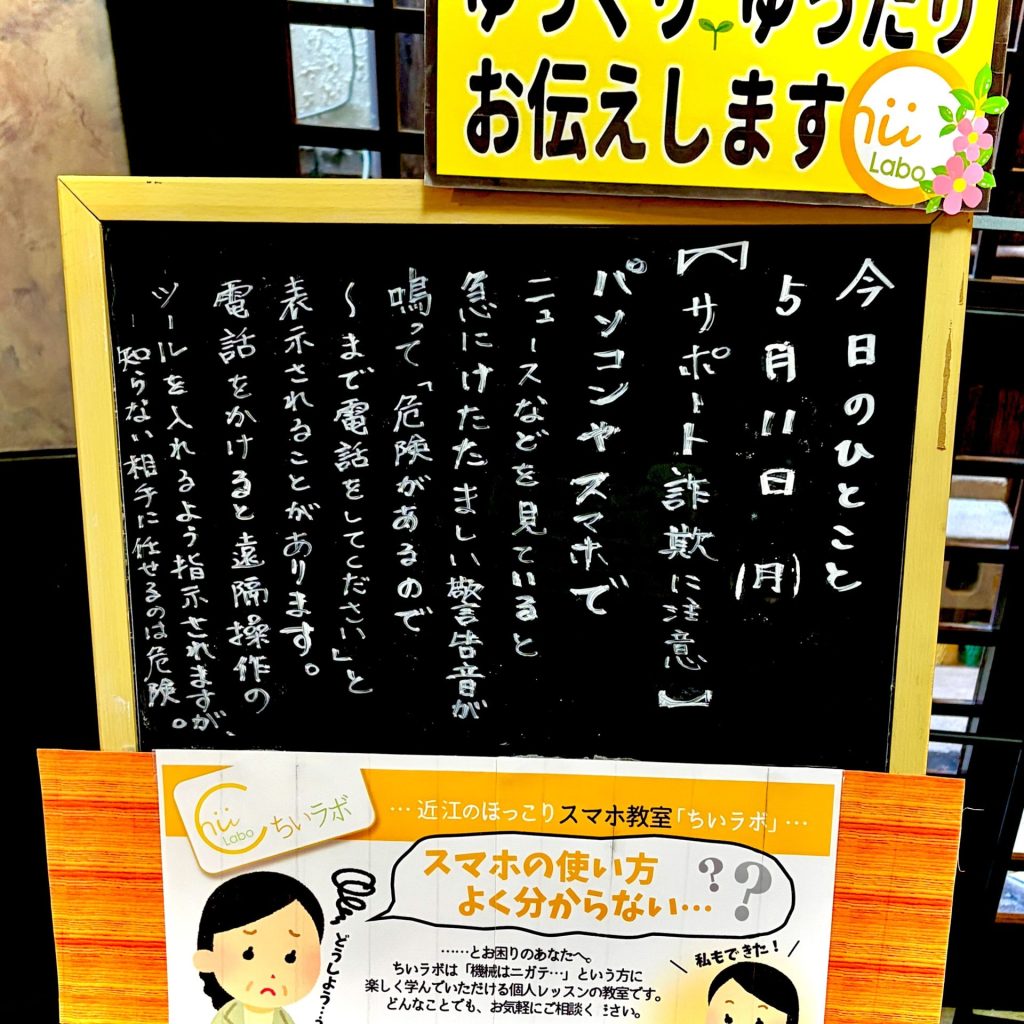 ゆっくり ゆったり
お伝えします
Chii
Labo
今日のひとこと
5月11日(月)
【サポート詐欺に注意】
パソコンやスマホで
ニュースなどを見ていると
急にけたたましい警告音が
鳴って「危険があるので
～まで電話をしてください」と
表示されることがあります。
電話をかけると遠隔操作の
ツールを入れるよう指示されますが、
知らない相手に任せるのは危険。
Chii
Labo
ちいラボ
…近江のほっこりスマホ教室「ちいラボ」…
スマホの使い方
よく分からない…
??
どうしよう…
……とお困りのあなたへ。
ちいラボは「機械はニガテ…」という方に
楽しく学んでいただける個人レッスンの教室です。
どんなことでも、お気軽にご相談ください。
私もできた!